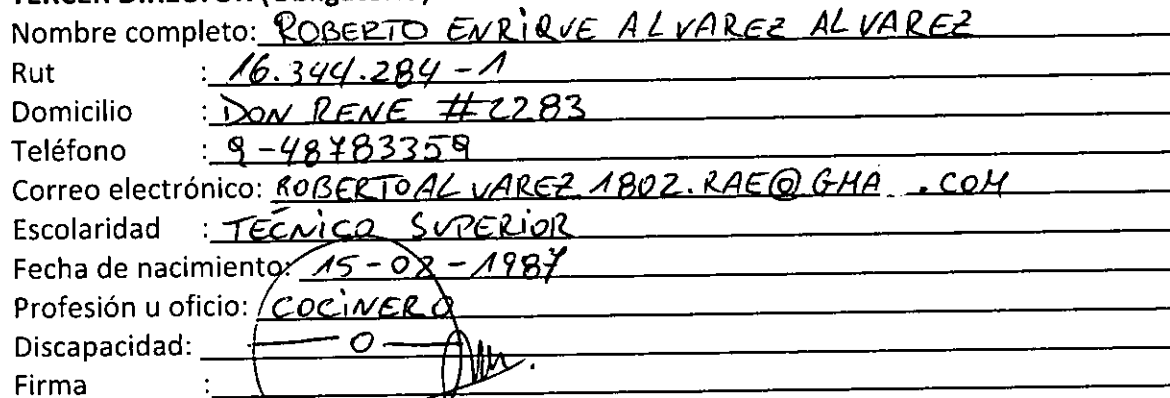 Nombre completo: ROBERTO ENRIQUE ALVAREZ ALVAREZ
Rut : 16.344.284-1
Domicilio : DON RENE #2283
Teléfono : 9-48783359
Correo electrónico: ROBERTOALVAREZ.1802.RAE@GMA .COM
Escolaridad : TECNICO SUPERIOR
Fecha de nacimiento: 15-02-1987
Profesión u oficio: COCINERO
Discapacidad: — O —
Firma :